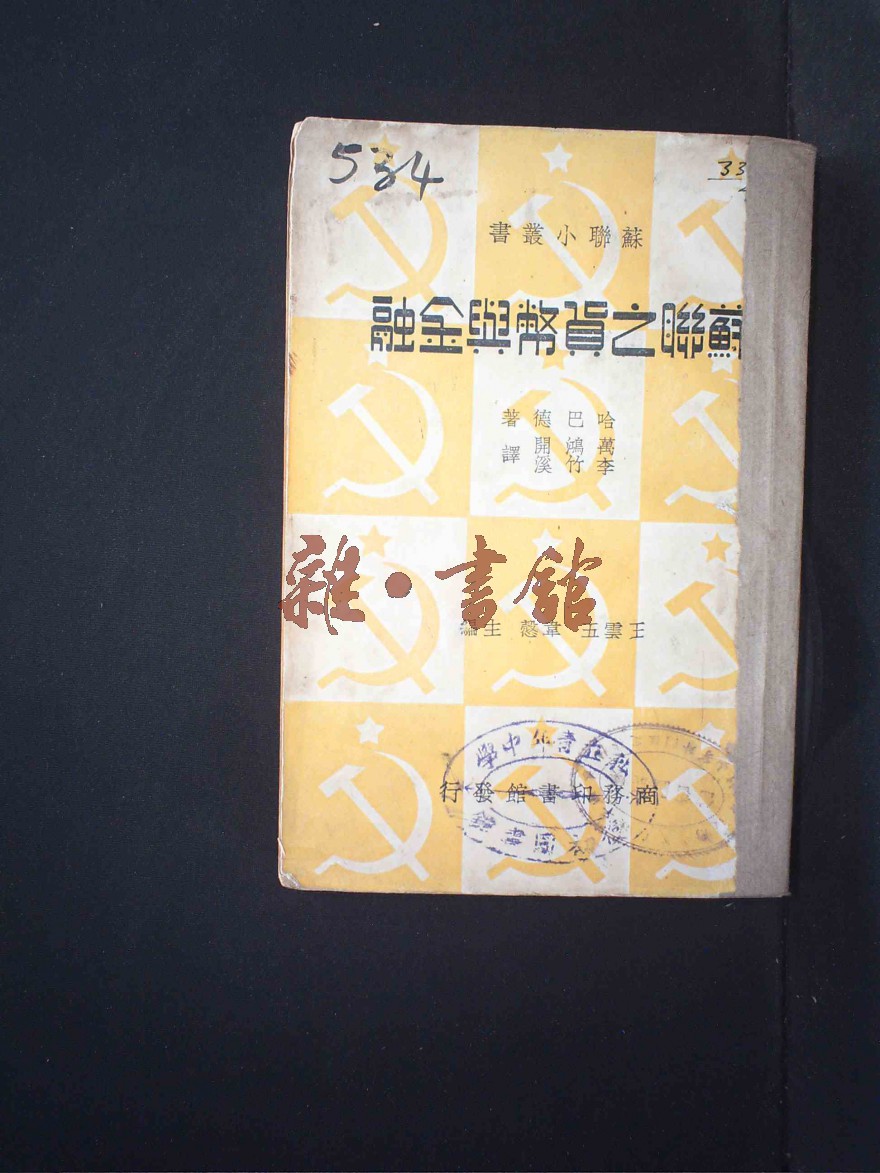 534
33
蘇聯小叢書
蘇聯之貨幣與金融
哈巴德著
萬鴻開
李竹溪
譯
雜·書館
王雲五 韋慤 主編
商務印書館發行